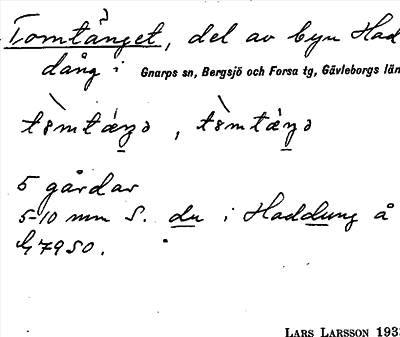 Tomtänget, del av byn Had
dång i Gnarps sn, Bergsjö och Forsa tg, Gävleborgs län
5 gårdar
5-10 mm S. du i Haddung å
G7950.
LARS LARSSON 193